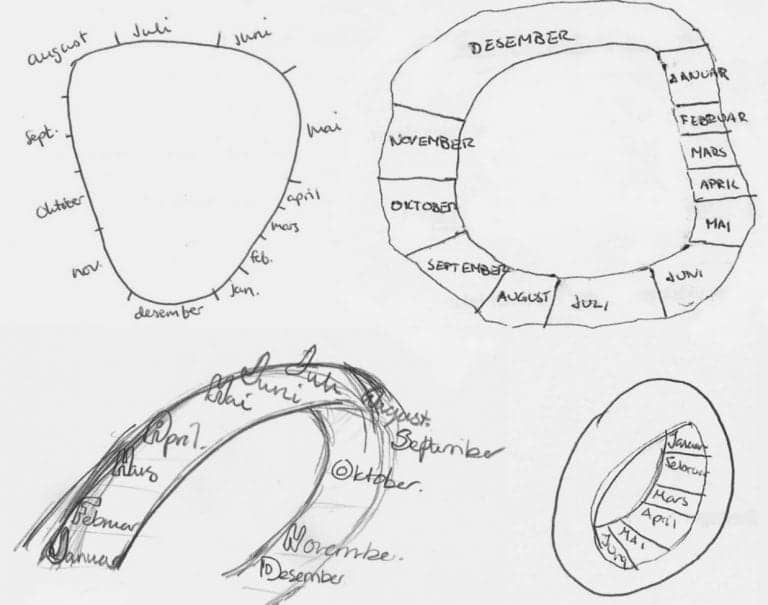 Juli
Juni
august
Sept.
mai
Oktober
april
mars
feb.
nov.
Jan.
desember
DESEMBER
JANUAR
FEBRUAR
NOVEMBER
MARS
APRIL
OKTOBER
MAI
SEPTEMBER
JUNI
AUGUST
JULI
Juli
Juni
Mai
August.
April.
September
Mars
Oktober.
Februar
November.
Januar
Desember
Januar
Februar
Mars
April
MAI
Juni